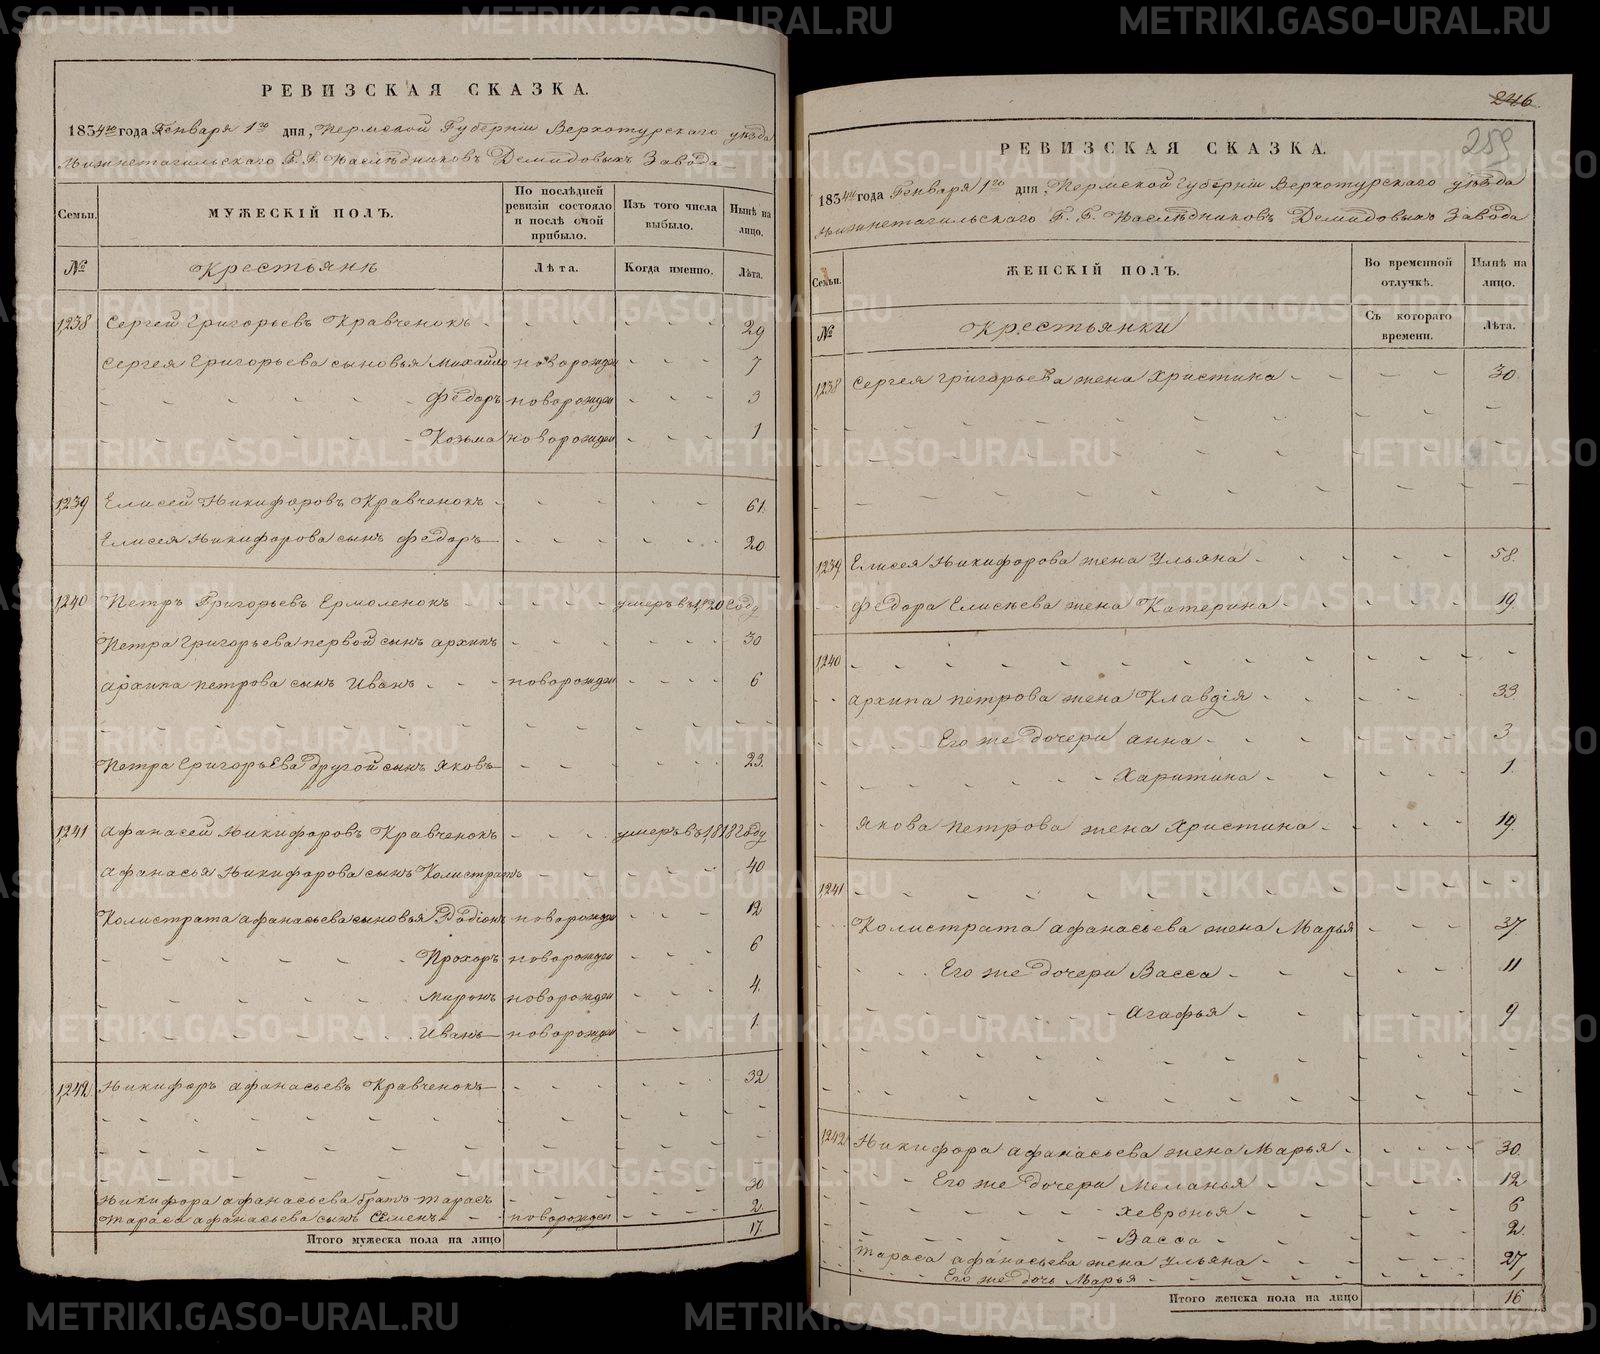 РЕВИЗСКАЯ СКАЗКА.
1834го года Генваря 1го дня, Пермской Губерніи Верхотурскаго уѣзда
Нижнетагильскаго Г. Г. Наслѣдниковъ Демидовыхъ Завода
Семьи. МУЖЕСКІЙ ПОЛЪ. По послѣдней ревизіи состояло и послѣ оной прибыло. Изъ того числа выбыло. Нынѣ на лицо.
№ Крестьянъ Лѣта. Когда именно. Лѣта.
1238 Сергей Григорьевъ Кравченокъ 29
Сергея Григорьева сыновья Михайло новорожден 7
Федоръ новорожден 3
Козьма новорожден 1
1239 Елисей Никифоровъ Кравченокъ 61.
Елисея Никифорова сынъ Федоръ 20
1240 Петръ Григорьевъ Ермоленокъ умеръ въ 1820 году
Петра Григорьева первой сынъ архипъ 30
архипа петрова сынъ Иванъ новорожден 6
Петра Григорьева другой сынъ Яковъ 23.
1241 Афанасей Никифоровъ Кравченокъ умеръ въ 1818 году
Афанасья Никифорова сынъ Колистратъ 40
Колистрата афанасьева сыновья Родіонъ новорожден 12
Прохоръ новорожден 6
Миронъ новорожден 4.
Иванъ новорожден 1.
1242 Никифоръ афанасьевъ Кравченокъ 32
Никифора афанасьева братъ тарасъ 30
Тараса афанасьева сынъ Семенъ новорожден 2
Итого мужеска пола на лицо 17
246
259
РЕВИЗСКАЯ СКАЗКА.
1834го года Генваря 1го дня, Пермской Губерніи Верхотурскаго уѣзда
Нижнетагильскаго Г. Г. Наслѣдниковъ Демидовыхъ Завода
Семьи. ЖЕНСКІЙ ПОЛЪ. Во временной отлучкѣ. Нынѣ на лицо.
№ Крестьянки Съ котораго времени. Лѣта.
1238 Сергея григорьева жена Христина 30.
1239 Елисея Никифорова жена Ульяна 58.
Федора Елисѣева жена Катерина 19.
1240
архипа петрова жена Клавдія 33
Его же дочери анна 3
Харитина 1.
Якова Петрова жена Христина 19.
1241
Колистрата афанасьева жена Марья 37
Его же дочери Васса 11
Агафья 9
1242 Никифора афанасьева жена Марья 30.
Его же дочери Меланья 12
Хевронья 6
Васса 2.
Тараса афанасьева жена Ульяна 27
Его же дочь Марья 1
Итого женска пола на лицо 16
METRIKI.GASO-URAL.RU